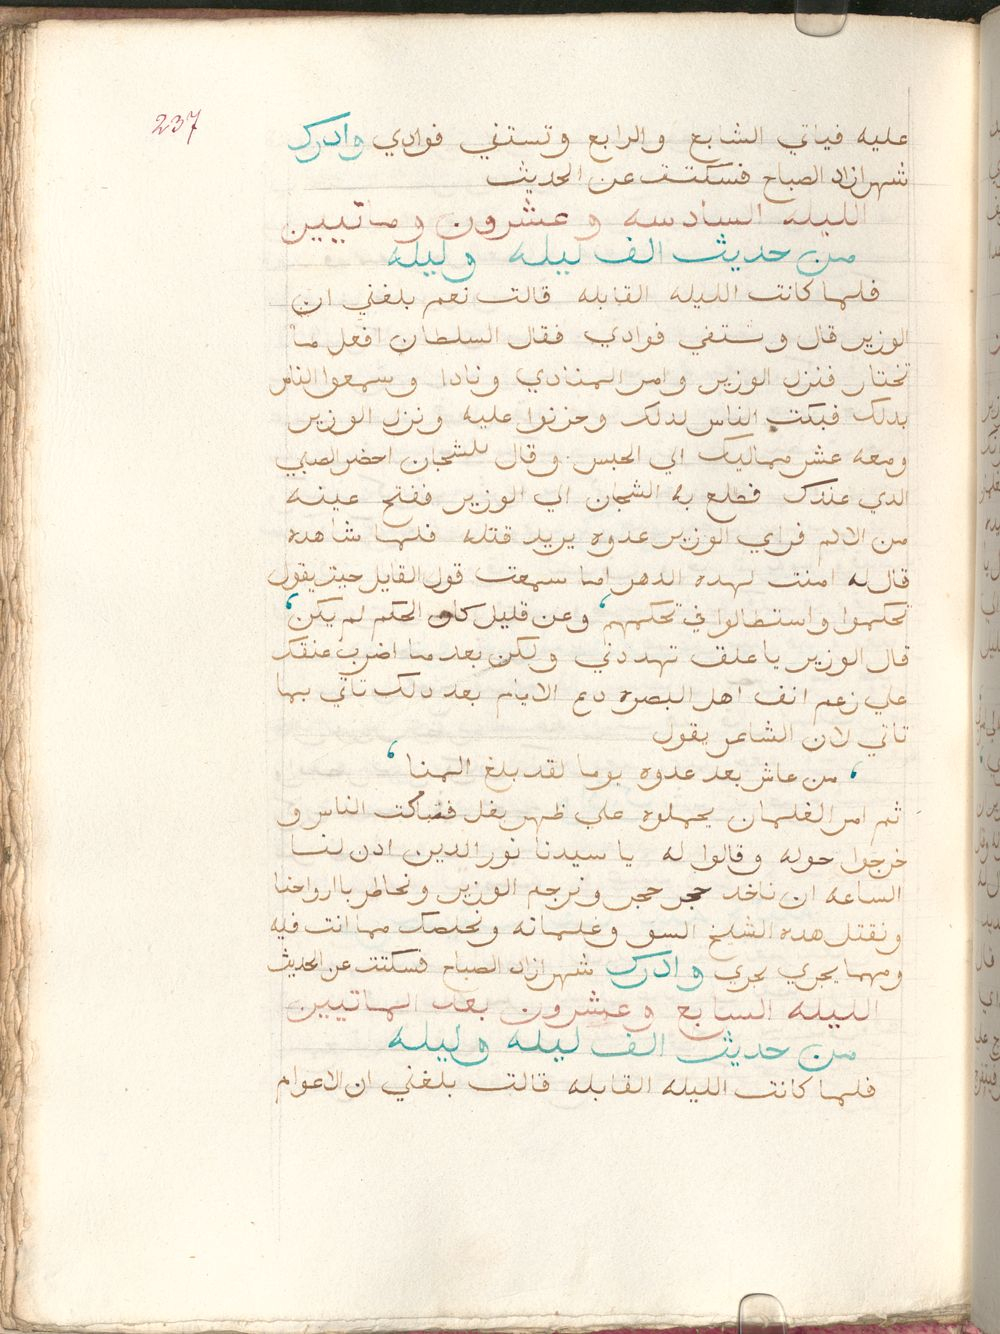 237
عليه فياتي الشابع والرابع وتستفي فوادي وادرك
شهرازاد الصباح فسكتت عن الحديث
الليله السادسه وعشرون وماتيين
من حديث الف ليله وليله
فلما كانت الليله القابله قالت نعم بلغني ان
الوزير قال وستفي فوادي فقال السلطان افعل ما
تختار فنزل الوزير وامر المنادي ونادا وسمعوا الناس
بدلك فبكت الناس لدلك وحزنوا عليه ونزل الوزير
ومعه عشر مماليك الي الحبس وقال للشجان احضر الصبي
الدي عندك فطلع به الشجان الي الوزير ففتح عينه
من الالم فراي الوزير عدوه يريد قتله فلما شاهده
قال له امنت لهده الدهر اما سمعت قول القايل حيث يقول
تحكموا واستطالوا في تحكمهم، وعن قليل كان الحكم لم يكن،
قال الوزير يا علق تهددني ولكن بعد منا اضرب عنقك
علي زعم انف اهل البصره دع الايام بعد دلك تاتي بها
تاتي لان الشاعر يقول
، من عاش بعد عدوه يوما لقد بلغ المنا ،
ثم امر الغلمان يحملوه علي ظهر بغل فتباكت الناس و
خرجوا حوله وقالوا له يا سيدنا نور الدين ادن لنا
الساعه ان ناخد حجر حجر ونرجم الوزير ونخاطر باارواحنا
ونقتل هده الشيخ السو وغلمانه ونخلصك مما انت فيه
ومهما يجري يجري وادرك شهرازاد الصباح فسكتت عن الحديث
الليله السابع وعشرون بعد الماتيين
من حديث الف ليله وليله
فلما كانت الليله القابله قالت بلغني ان الاعوام